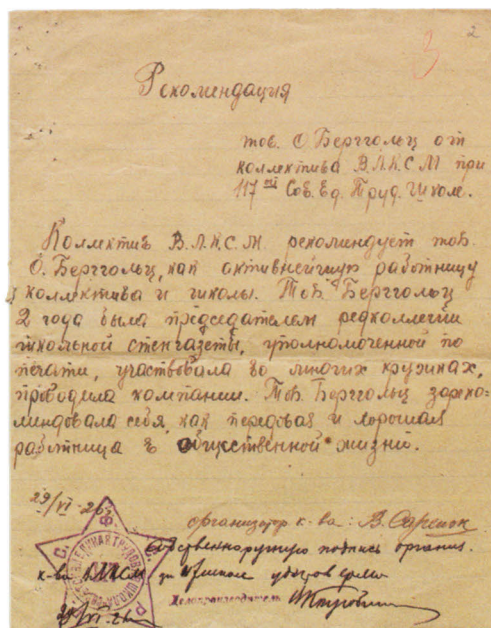 2
3
Рекомендация
тов. О. Берггольц от
коллектива В.Л.К.С.М при
117ой Сов. Ед. Труд. Школе.
Коллектив В.Л.К.С.М рекомендует тов.
О. Берггольц, как активнейшую работницу
коллектива и школы. Тов. Берггольц
2 года была председателем редколлегии
школьной стенгазеты, уполномоченной по
печати, участвовала во многих кружках,
проводила компании. Тов. Берггольц зареко-
мендовала себя, как передовая и хорошая
работница в общественной жизни.
29/VI-26г.
организатор к-ва: В.
собственноручную подпись органи.
к-ва ВЛКСМ
Делопроизводитель